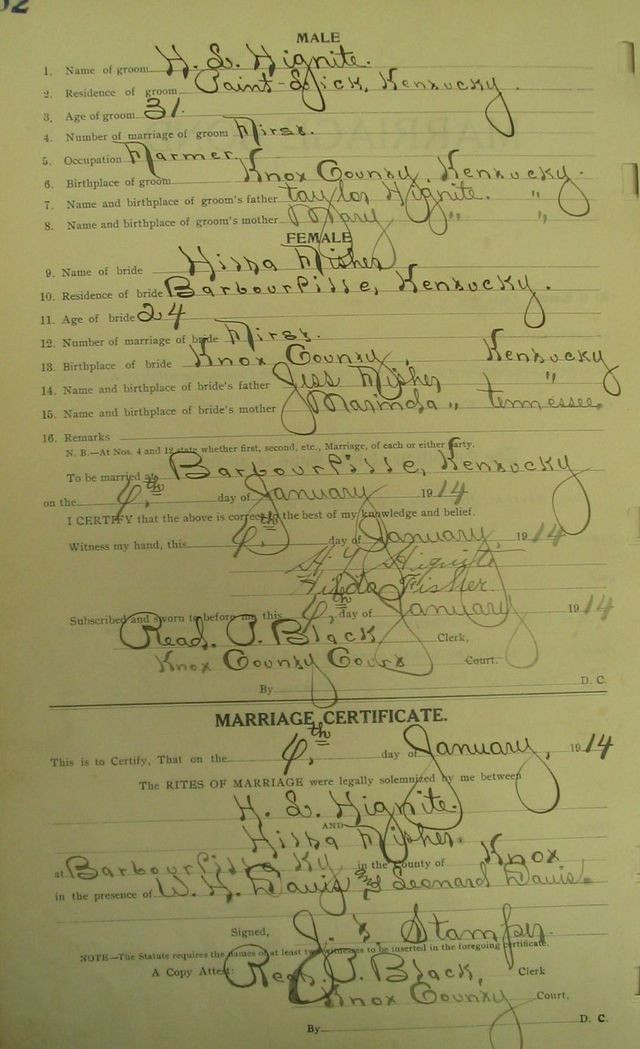 52
MALE
1. Name of groom H. L. Hignite.
2. Residence of groom Paint-Lick, Kentucky.
3. Age of groom 31.
4. Number of marriage of groom First.
5. Occupation Farmer.
6. Birthplace of groom Knox County, Kentucky.
7. Name and birthplace of groom's father Taylor Hignite. "
8. Name and birthplace of groom's mother Mary " "
FEMALE
9. Name of bride Hilda Fisher
10. Residence of bride Barbourville, Kentucky.
11. Age of bride 24
12. Number of marriage of bride First.
13. Birthplace of bride Knox County, Kentucky
14. Name and birthplace of bride's father Jess Fisher "
15. Name and birthplace of bride's mother Marinda " Tennessee.
16. Remarks
N. B.—At Nos. 4 and 12 state whether first, second, etc., Marriage, of each or either party.
To be married at Barbourville, Kentucky
on the 4,th day of January 1914
I CERTIFY that the above is correct to the best of my knowledge and belief.
Witness my hand, this 4,th day of January, 1914
H. L. Hignite
Hilda Fisher
Subscribed and sworn to before me this 4,th day of January 1914
Read. P. Black Clerk,
Knox County Court Court.
By D. C.
MARRIAGE CERTIFICATE.
This is to Certify, That on the 4,th day of January, 1914
The RITES OF MARRIAGE were legally solemnized by me between
H. L. Hignite.
AND
Hilda Fisher.
at Barbourville Ky in the County of Knox
in the presence of W. H. Davis and Leonard Davis.
Signed, J. Stamper.
NOTE—The Statute requires the names of at least two witnesses to be inserted in the foregoing certificate.
A Copy Attest: Read. P. Black, Clerk
Knox County Court,
By D. C.